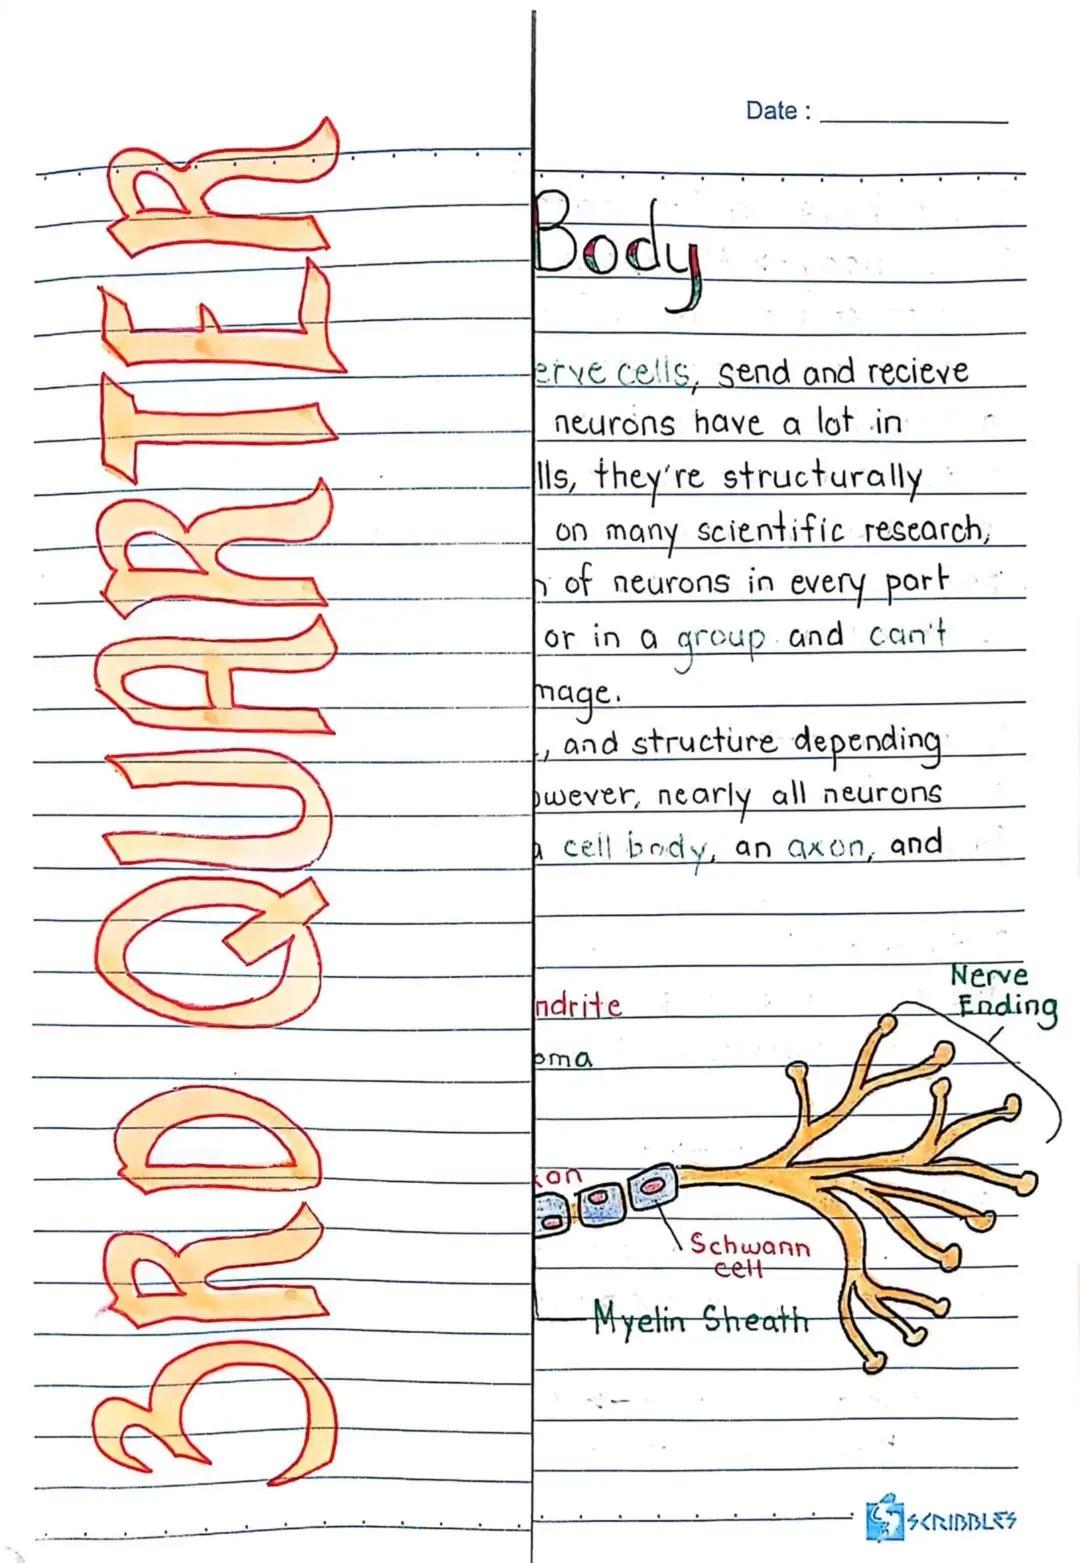 3RD QUARTER
Date :
Body
erve cells, send and recieve
neurons have a lot in
lls, they're structurally
on many scientific research,
of neurons in every part
or in a group and can't
mage.
, and structure depending
owever, nearly all neurons
a cell body, an axon, and
Nerve
Ending
ndrite
oma
xon
Schwann
cell
Myelin Sheath
SCRIBBLES